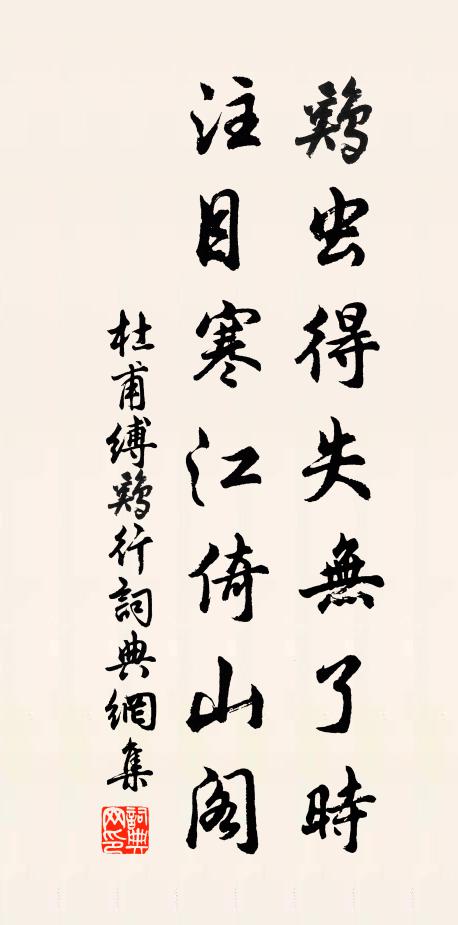 鷄虫得失無了時
注目寒江倚山阁
杜甫缚鷄行詞典網集
詞典网印